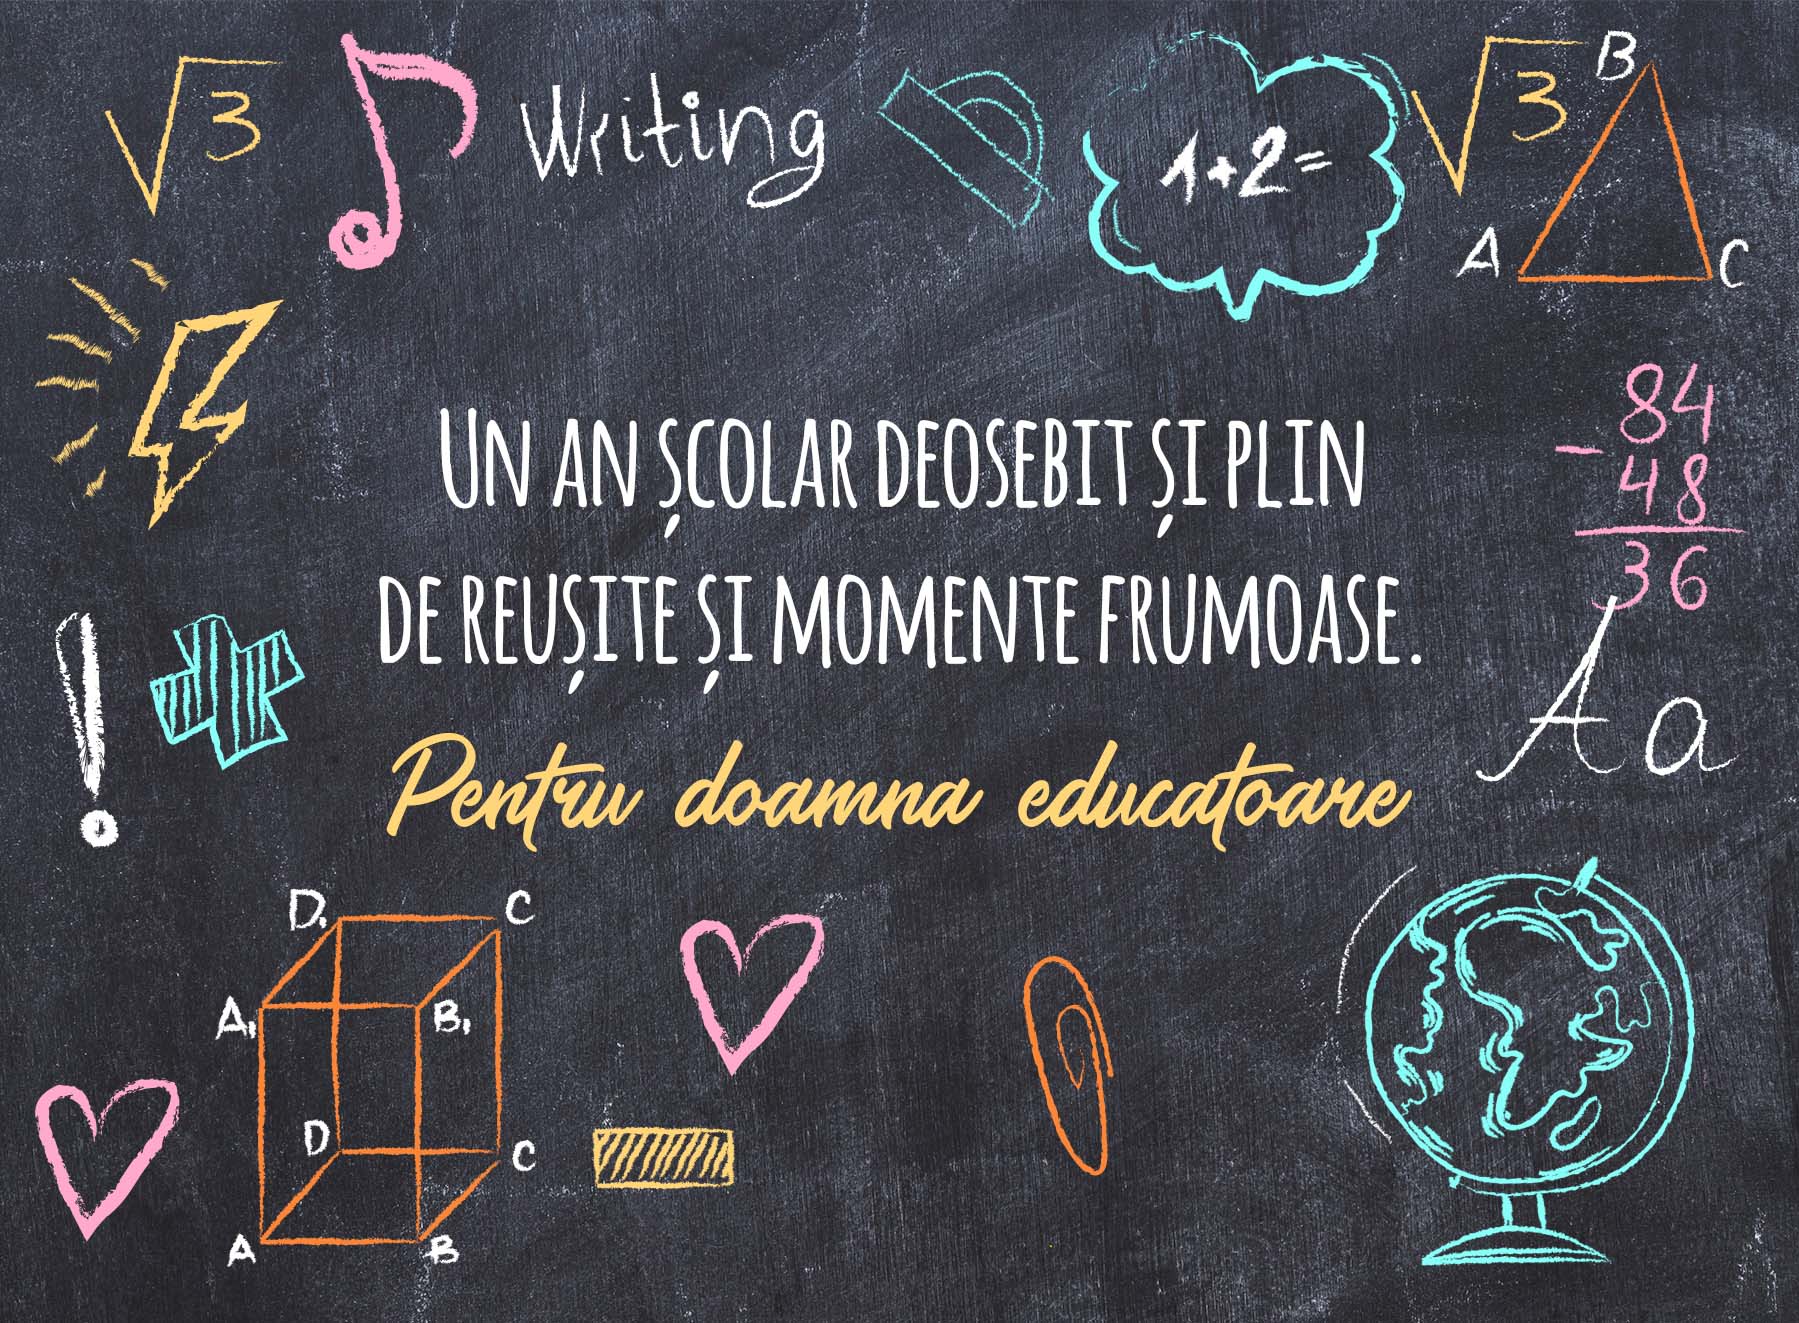 √3
Writing
1+2=
√3
B
A
C
84
- 48
36
UN AN ȘCOLAR DEOSEBIT ȘI PLIN
DE REUȘITE ȘI MOMENTE FRUMOASE.
Aa
Pentru doamna educatoare
!
D₁
C
A₁
B₁
D
C
A
B